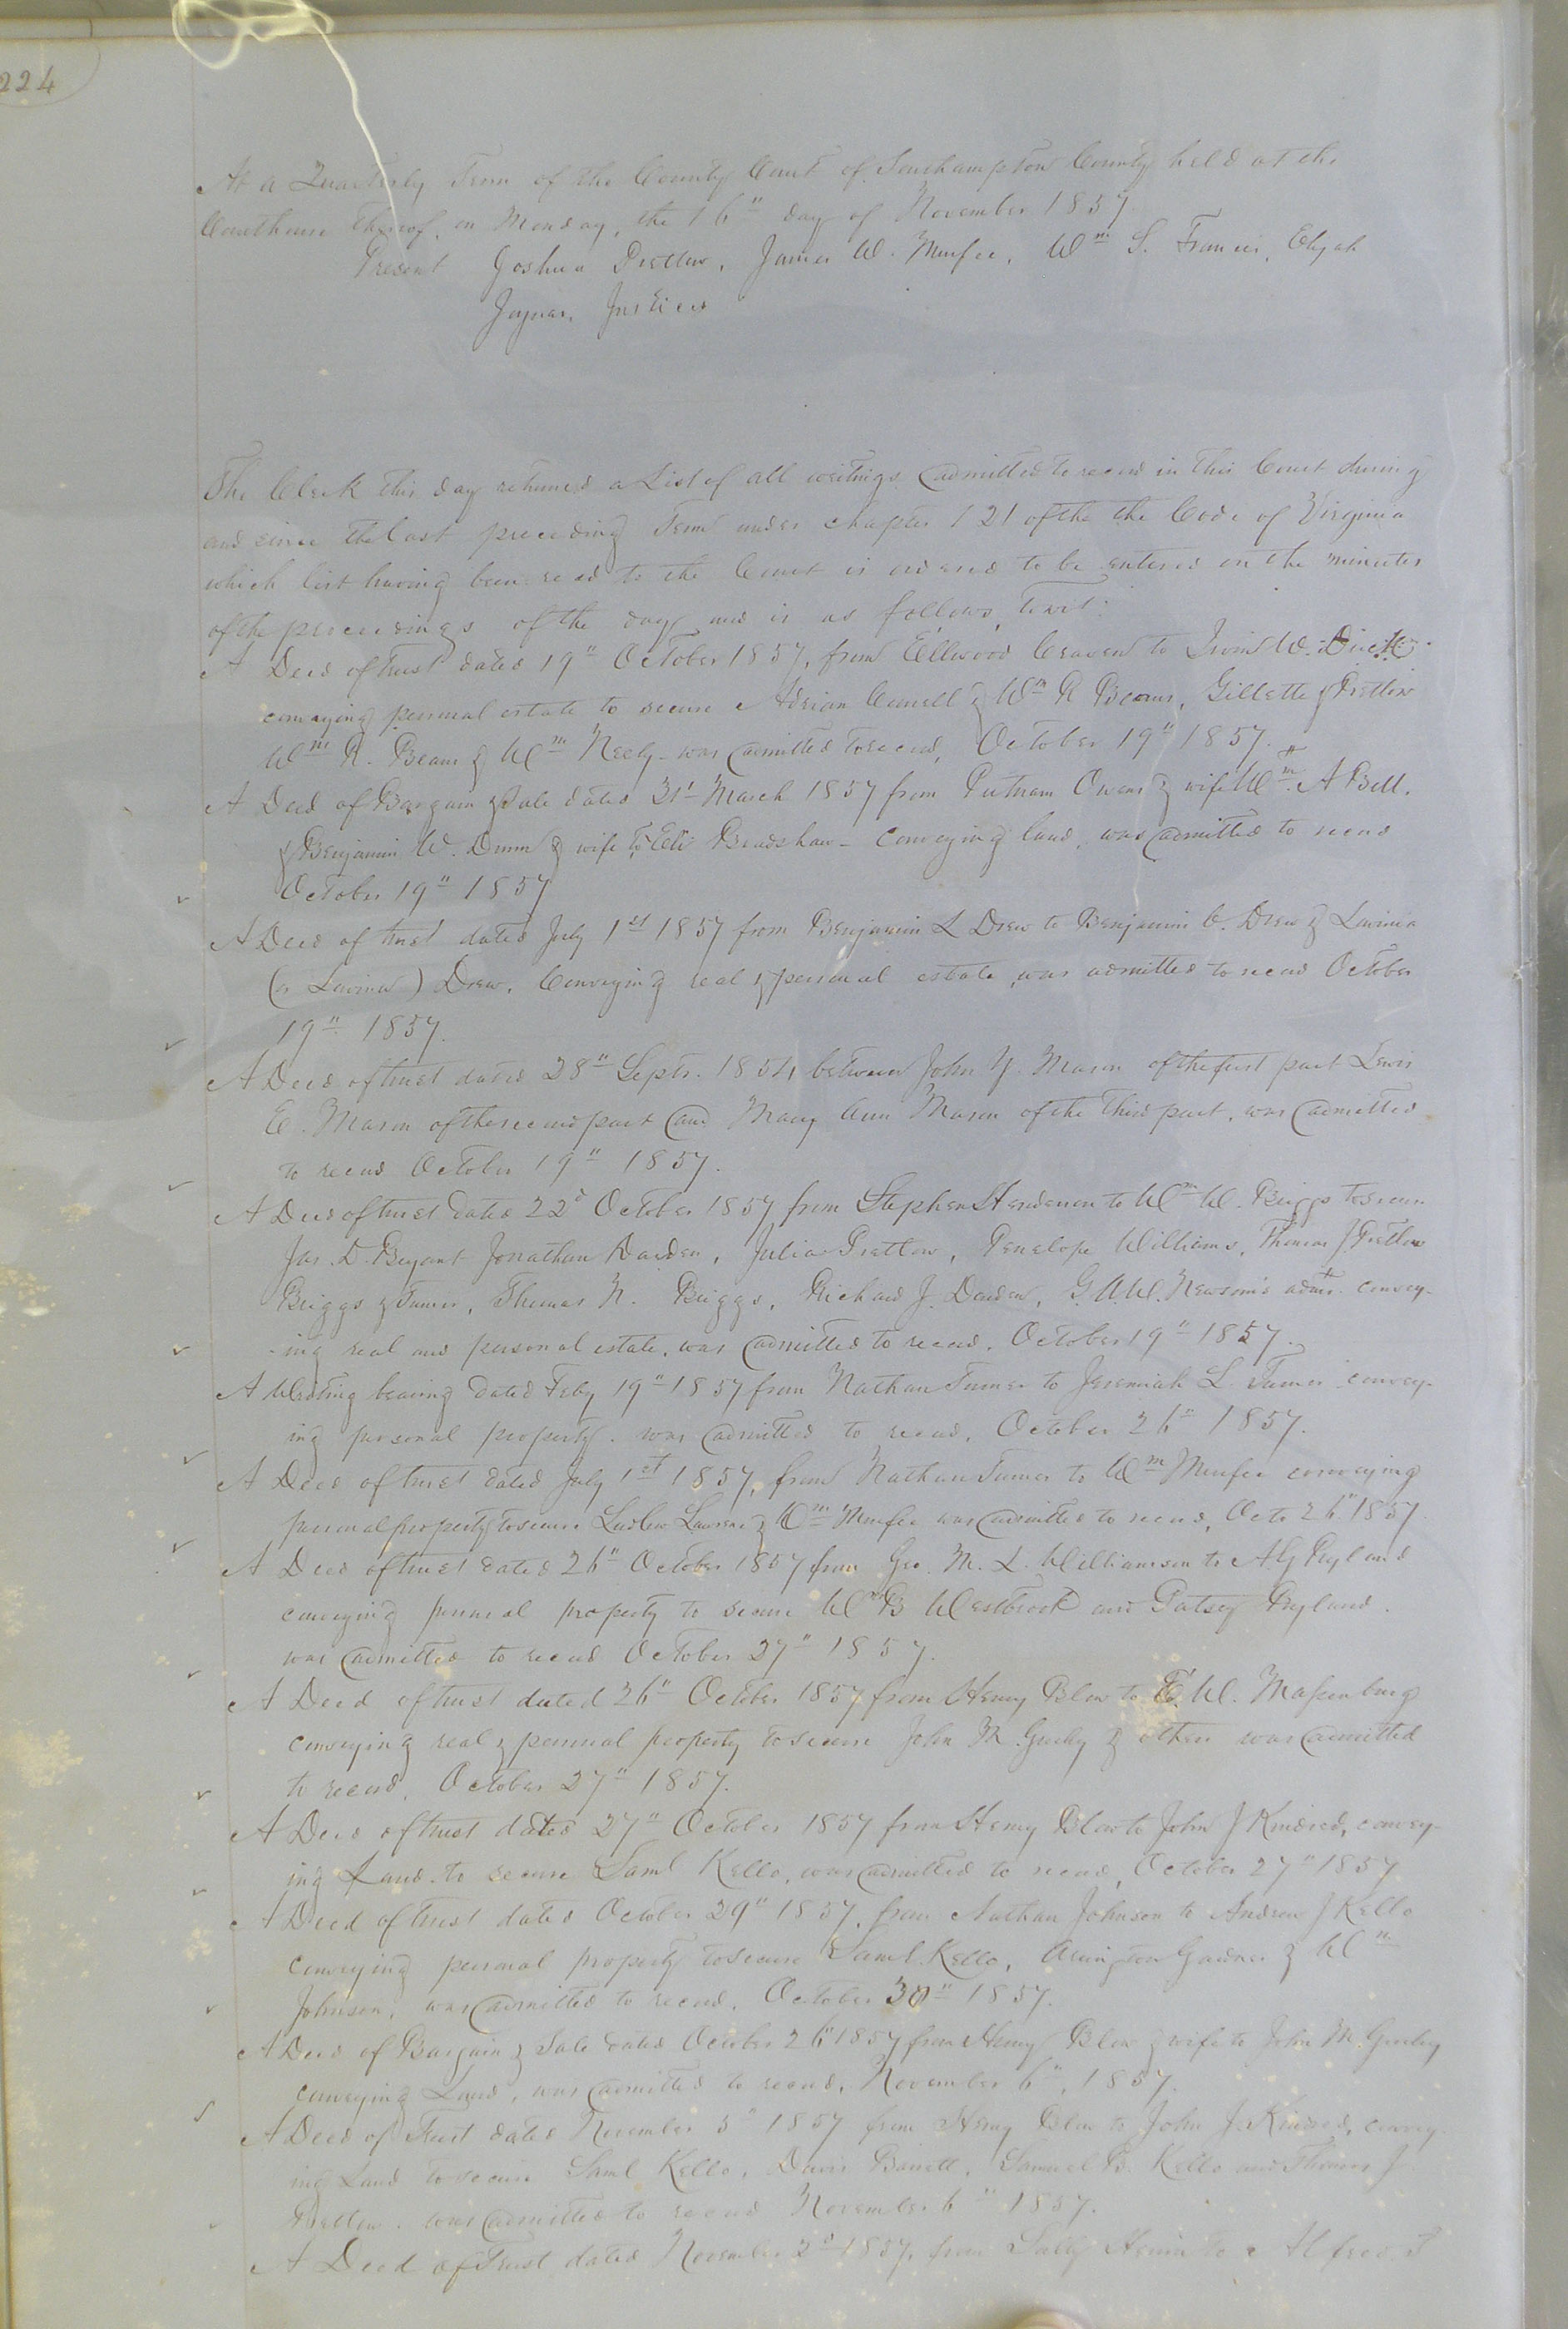 224
At a Quarterly Term of the County Court of Southampton County held at the
Courthouse thereof, on Monday, the 16" day of November 1857
Present Joshua Pretlow, James W. Murfee, Wm S. Francis, Elijah
Joyner, Justices
The Clerk this day returned a List of all writings admitted to record in this Court during
and since the last preceeding Term under chapter 121 of the the Code of Virginia
which list having been read to the Court is ordered to be entered on the minutes
of the proceedings of the day and is as follows, towit:
A Deed of trust dated 19" October 1857, from Ellwood Craven to Irvin W. Duck
conveying personal estate to secure Adrian Council & Wm R Beams, Gillette & Pretlow
Wm R. Beams & Wm Neely - was admitted to record, October 19" 1857.
A Deed of Bargain & Sale dated 31st March 1857 from Putnam Owens & wife Wm A Bell.
& Benjamin W. Dunn & wife to Eli Bradshaw - conveying land, was admitted to record
October 19" 1857
A Deed of trust dated July 1st 1857 from Benjamin L Drew to Benjamin C. Drew & Lavinia
(or Lavinia) Drew. Conveying real & personal estate, was admitted to record October
19" 1857.
A Deed of trust dated 28" Septr. 1854 between John Y. Mason of the first part Lewis
E. Mason of the second part and Mary Ann Mason of the third part, was admitted
to record October 19" 1857.
A Deed of trust dated 22d October 1857 from Stephen Henderson to Wm W. Briggs to secure
Jas. D. Bryant Jonathan Darden, Julia Pretlow, Penelope Williams, Thomas J. Pretlow
Briggs & Turner, Thomas N. Briggs, Richard J. Darden, G.A.W. Newsom's admr. convey-
-ing real and personal estate, was admitted to record, October 19" 1857.
A Writing bearing dated Feby 19" 1857 from Nathan Turner to Jeremiah L. Turner convey-
ing personal property. was admitted to record, October 26" 1857.
A Deed of trust dated July 1st 1857, from Nathan Turner to Wm Murfee conveying
personal property to secure Ludlow Lawrence & Wm Murfee was admitted to record, Octo 26" 1857.
A Deed of trust dated 26" October 1857 from Geo. M. L. Williamson to A G Ryland
conveying personal property to secure Wm B Westbrook and Patsey Ryland.
was admitted to record October 27" 1857.
A Deed of trust dated 26" October 1857 from Henry Blow to E. W. Massenburg
conveying real & personal property to secure John M. Gurley & others was admitted
to record, October 27" 1857.
A Deed of trust dated 27" October 1857 from Henry Blow to John J Kindred, convey-
ing Land. to secure Saml Kello, was admitted to record, October 27" 1857
A Deed of trust dated October 29" 1857, from Nathan Johnson to Andrew J Kello
conveying personal property to secure Saml. Kello, Gardner & Wm
Johnson, was admitted to record, October 30" 1857.
A Deed of Bargain & Sale dated October 26" 1857 from Henry Blow & wife to John M. Gurley
conveying Land, was admitted to record, November 6", 1857.
A Deed of Trust dated November 5" 1857 from Henry Blow to John J. Kindred, convey-
ing Land to secure Saml Kello, Davis Barrett, Samuel B. Kello and Thomas J
Pretlow. was admitted to record November 6" 1857.
A Deed of Trust dated November 2d 1857, from Sally to Alfred